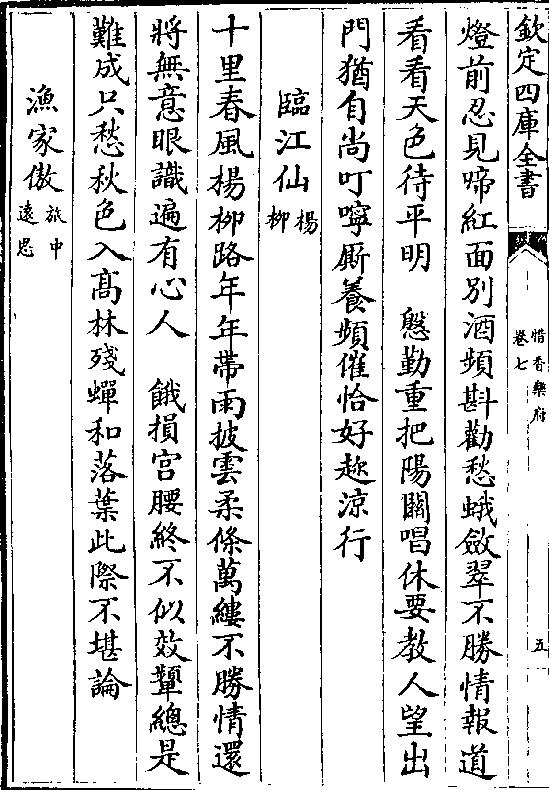 欽定四庫全書
惜香樂府
卷七
五
燈前忍見啼紅面別酒頻斟勸愁蛾斂翠不勝情報道
看看天色待平明　慇勤重把陽關唱休要教人望出
門猶自尚叮嚀厮養頻催恰好趂涼行
臨江仙楊柳
十里春風楊柳路年年帶雨披雲柔條萬縷不勝情還
將無意眼識遍有心人　餓損宫腰終不似效顰總是
難成只愁秋色入髙林殘蟬和落葉此際不堪論
漁家傲旅中遠思